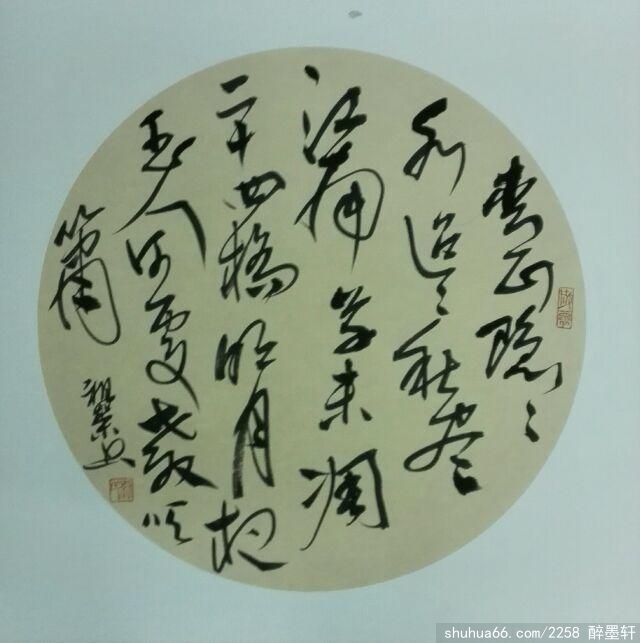 青山隐〻
水迢〻秋尽
江南草未凋
二十四橋明月夜
玉人何處教吹
簫
shuhua66.com/2258 醉墨轩